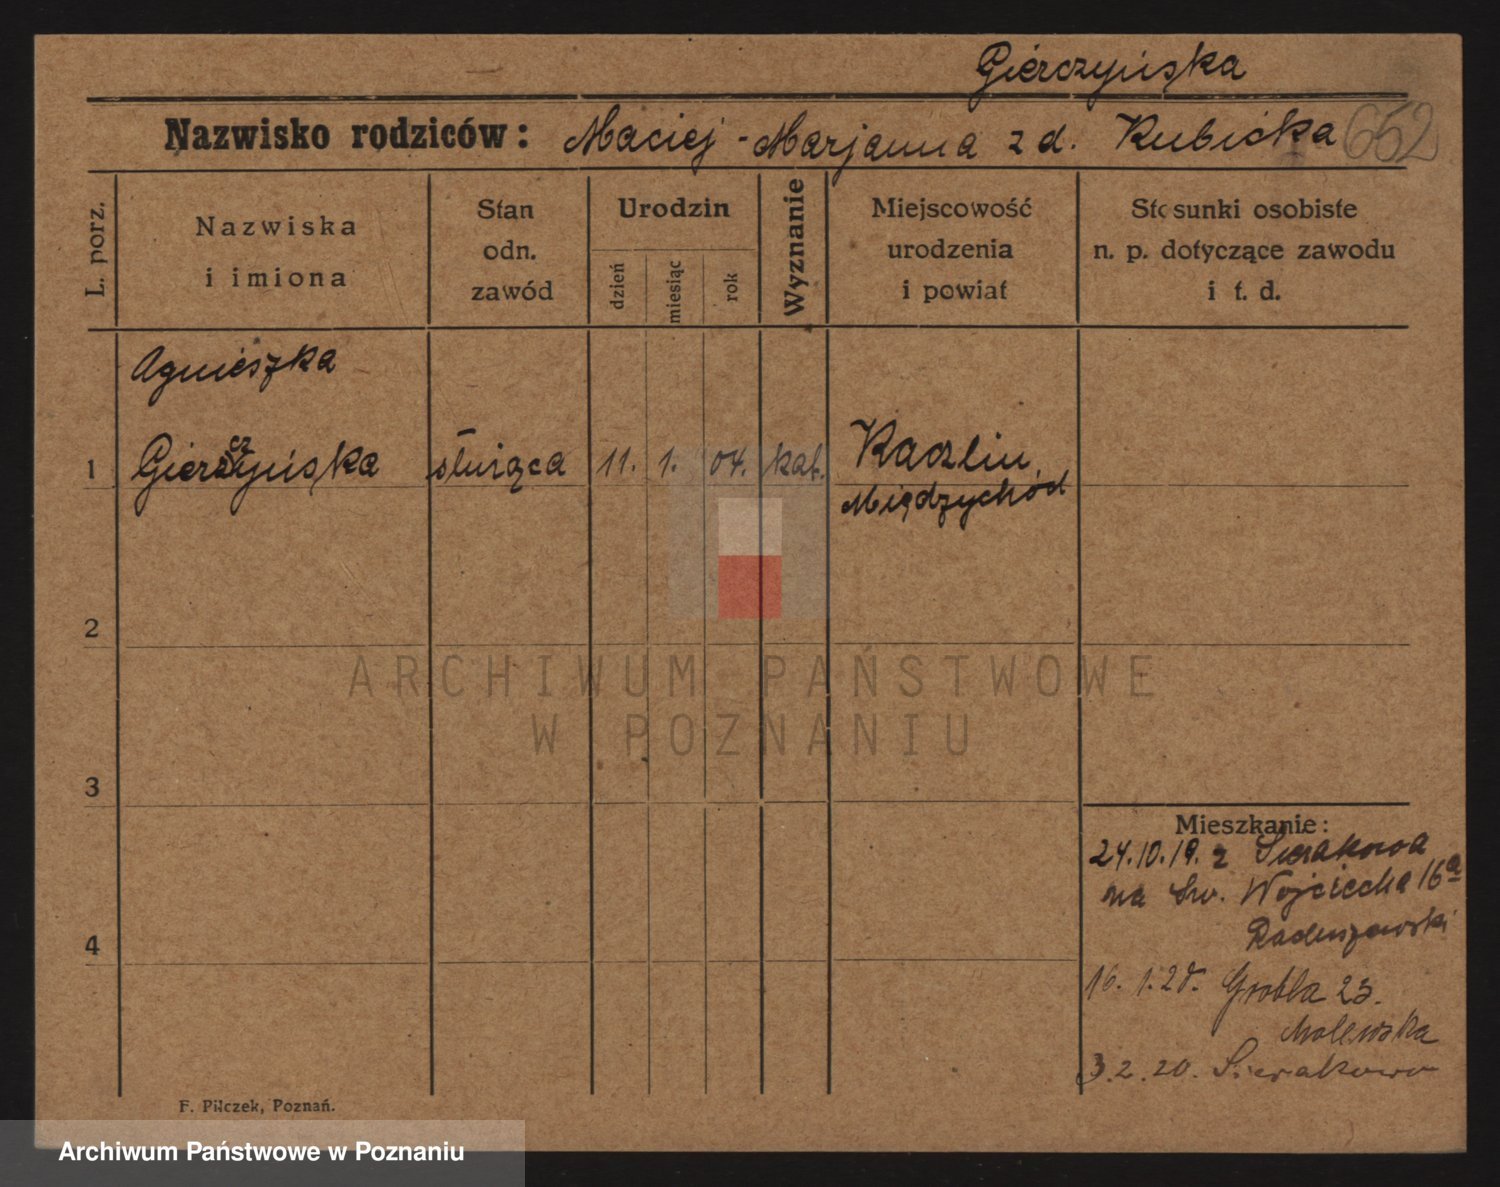 Gierczyńska
Nazwisko rodziców: Maciej - Marjanna z d. Kubicka 652
L. porz.
Nazwiska
i imiona
Stan
odn.
zawód
Urodzin
dzień
miesiąc
rok
Wyznanie
Miejscowość
urodzenia
i powiat
Stosunki osobiste
n. p. dotyczące zawodu
i t. d.
Agnieszka
1 Gierczyńska służąca 11. 1. 04. kat. Kaczlin
Międzychód
2
ARCHIWUM PAŃSTWOWE
W POZNANIU
3
Mieszkanie:
24.10.19. z Sierakowa
na Św. Wojciecha 16a
Raduszewski
16. 1. 20. Grobla 23.
Molewska
4
3. 2. 20. Sierakowo
F. Pilczek, Poznań.
Archiwum Państwowe w Poznaniu